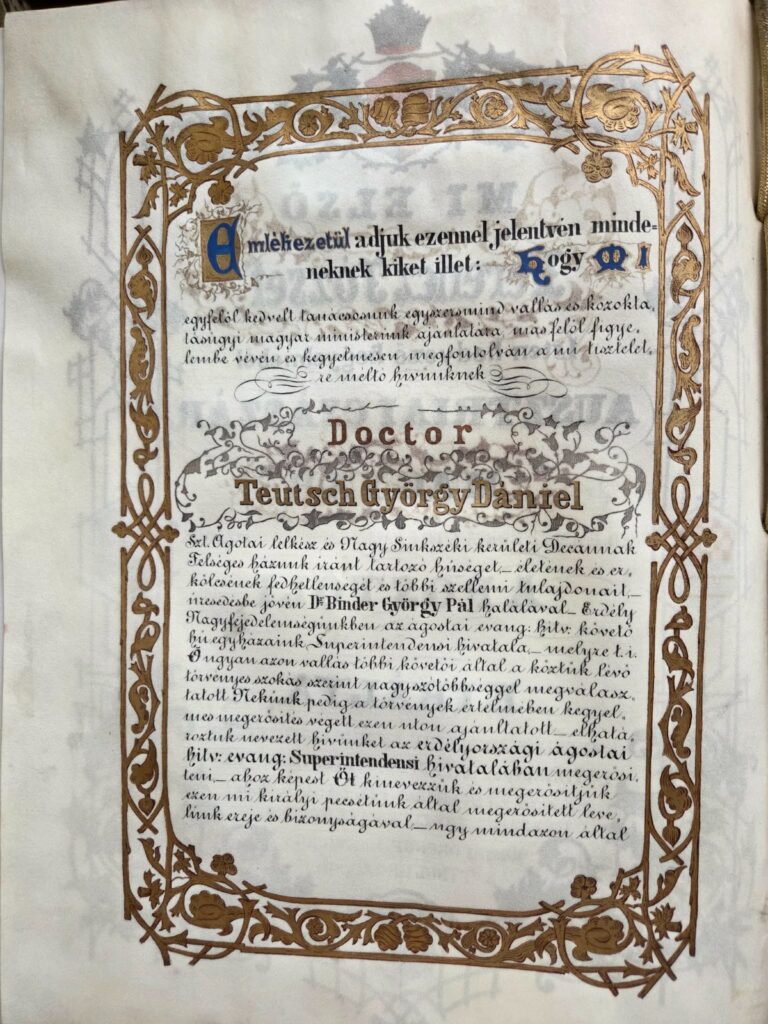 Emlékezetül adjuk ezennel jelentvén minde=
neknek kiket illet: Hogy MI
egyfelől kedvelt tanácsosunk egyszersmind vallás és közokta,
tásügyi magyar ministerünk ajánlatára, másfelől figye,
lembe vévén és kegyelmesen megfontolván a mi tisztelet,
re méltó hívünknek
Doctor
Teutsch György Dániel
Szt. Ágotai lelkész és Nagy Sinkszéki kerületi Decannak
Felséges házunk iránt tartozó hűségét,_ életének és er,
kölcsének fedhetlenségét és többi szellemi tulajdonait,_
üresedésbe jövén Dr Binder György Pál halálával_ Erdély
Nagyfejedelemségünkben az ágostai evang: hitv: követő
hű egyházaink Superintendensi hivatala,_ melyre t. i.
Ő ugyan azon vallás többi követői által a köztük lévő
törvényes szokás szerint nagy szótöbbséggel megválasz,
tatott Nekünk pedig a törvények értelmében kegyel,
mes megerősítés végett ezen uton ajánltatott_ elhatá,
roztuk nevezett hívünket az erdélyországi ágostai
hitv: evang: Superintendensi hivatalában megerősí,
teni,_ ahoz képest Őt kinevezzük és megerősítjük
ezen mi királyi pecsétünk által megerősített leve,
lünk ereje és bizonyságával,_ ugy mindazon által